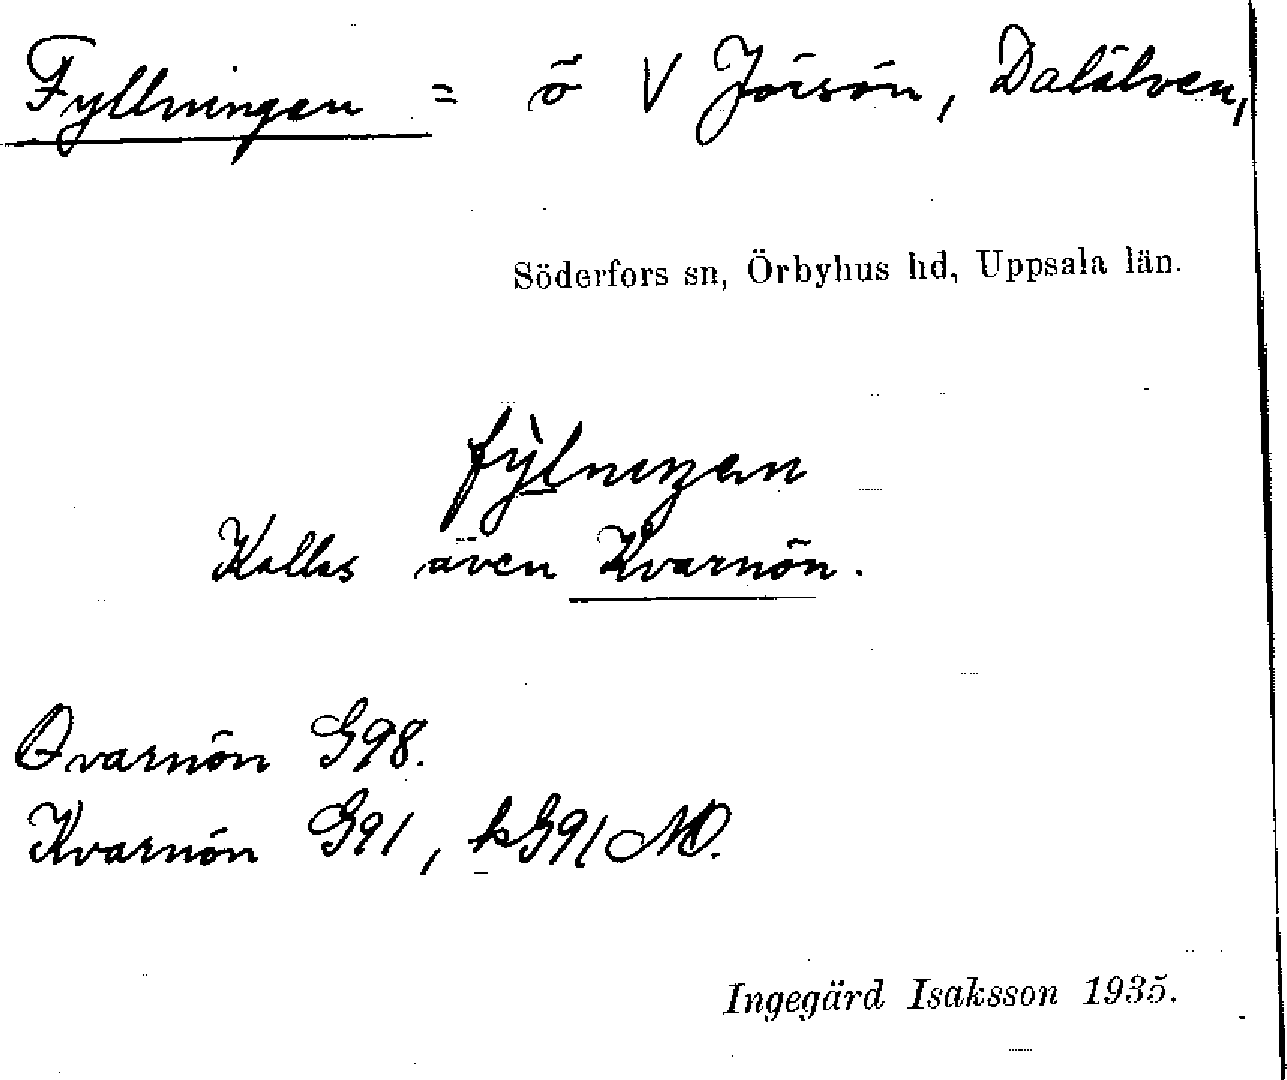 Fyllningen = ö V Jörsön, Dalälven,
Söderfors sn, Örbyhus hd, Uppsala län.
fỳlnıŋen
Kallas även Kvarnön.
Qvarnön G98.
Kvarnön G91, kG91 MO.
Ingegärd Isaksson 1935.